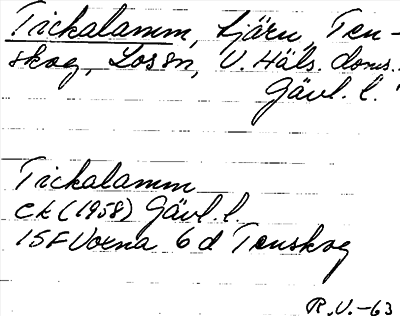 Trickalamm, tjärn, Ten-
skog, Los sn, V. Häls. doms.
Gävl. l.
Trickalamm
Ek (1958) Gävl. l.
15F Voxna 6d Tenskog
R.V.-63